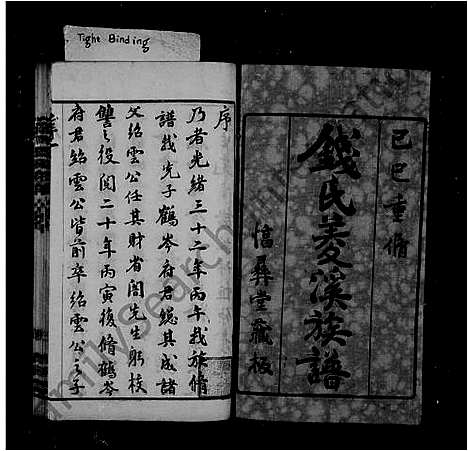 Tight Binding
己巳重脩
錢氏菱溪族譜
信彝堂藏板
序
乃者光緒三十二年丙午我族脩
譜我先子鶴岑府君總其成諸
父紹雲公任其財省閭先生躬校
讐之役閱二十年丙寅復脩鶴岑
府君紹雲公皆前卒紹雲公之子